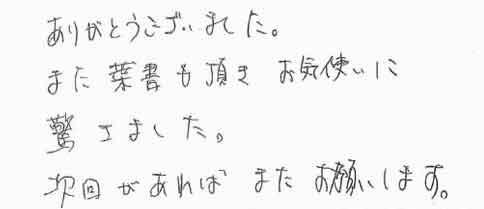 ありがとうございました。
また葉書も頂き お気使いに
驚きました。
次回があれば またお願いします。